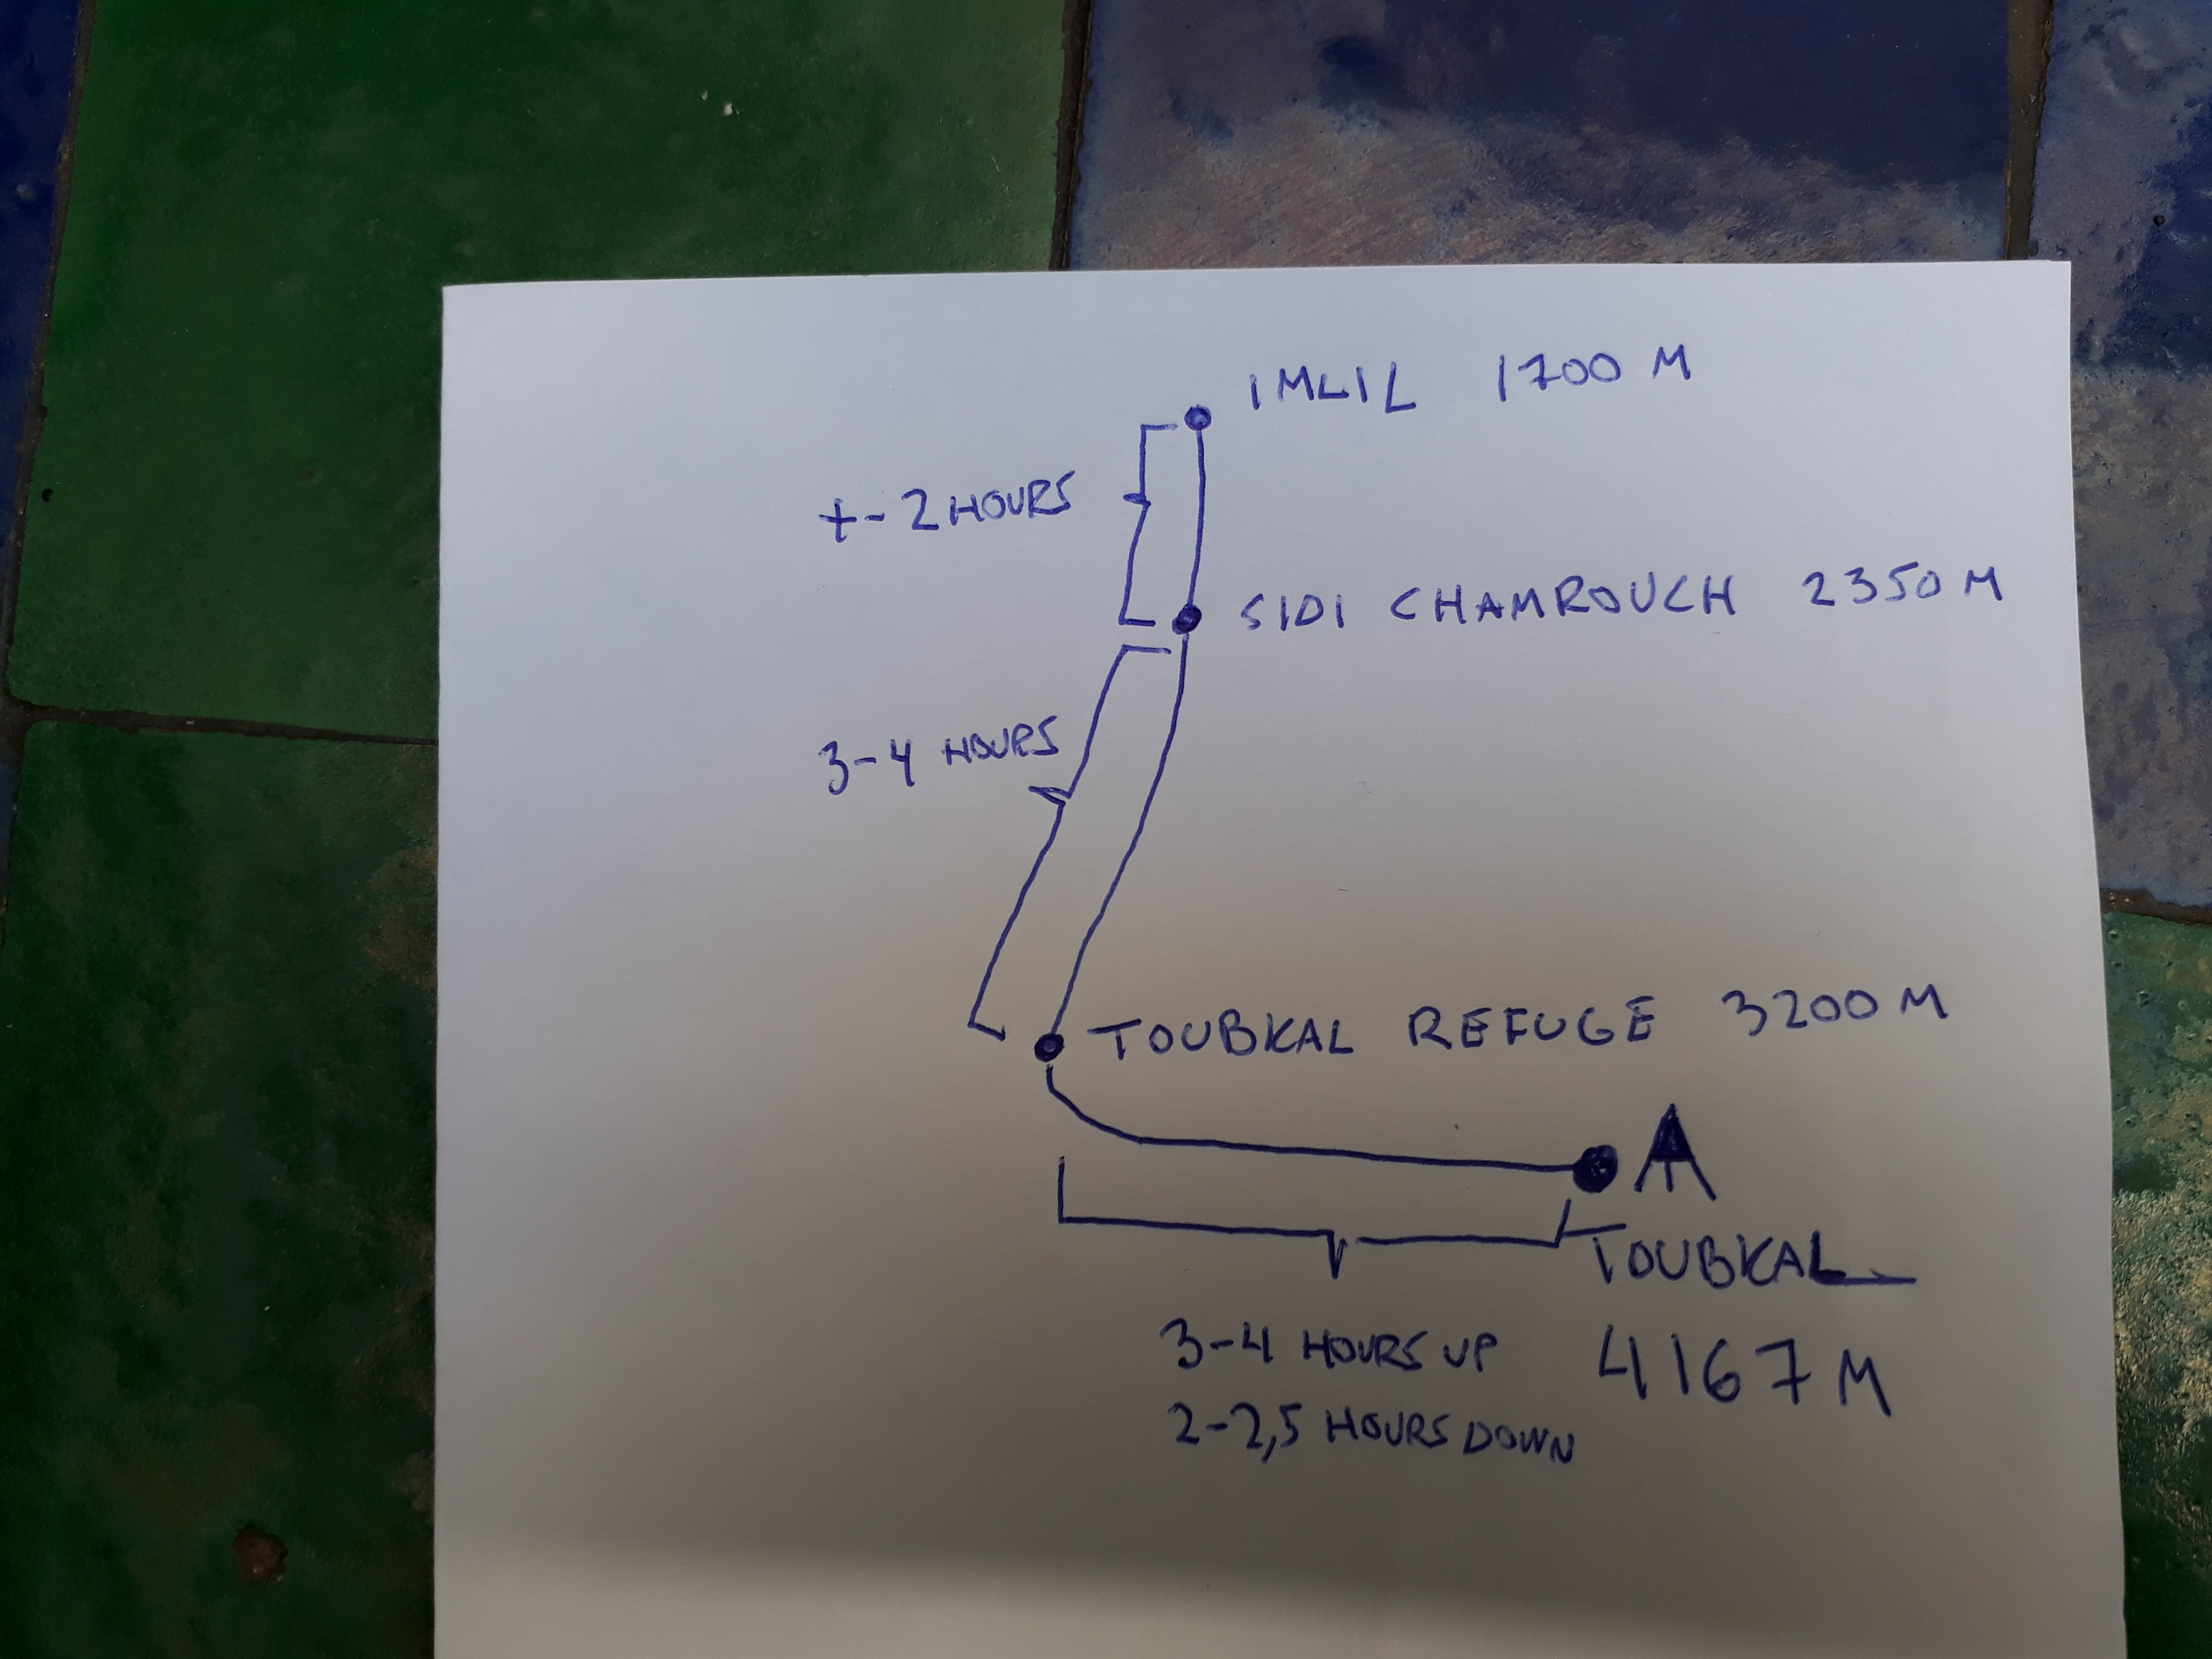 IMLIL 1700 M
+-2 HOURS
SIDI CHAMROUCH 2350 M
3-4 HOURS
TOUBKAL REFUGE 3200 M
TOUBKAL
4167 M
3-4 HOURS UP
2-2,5 HOURS DOWN